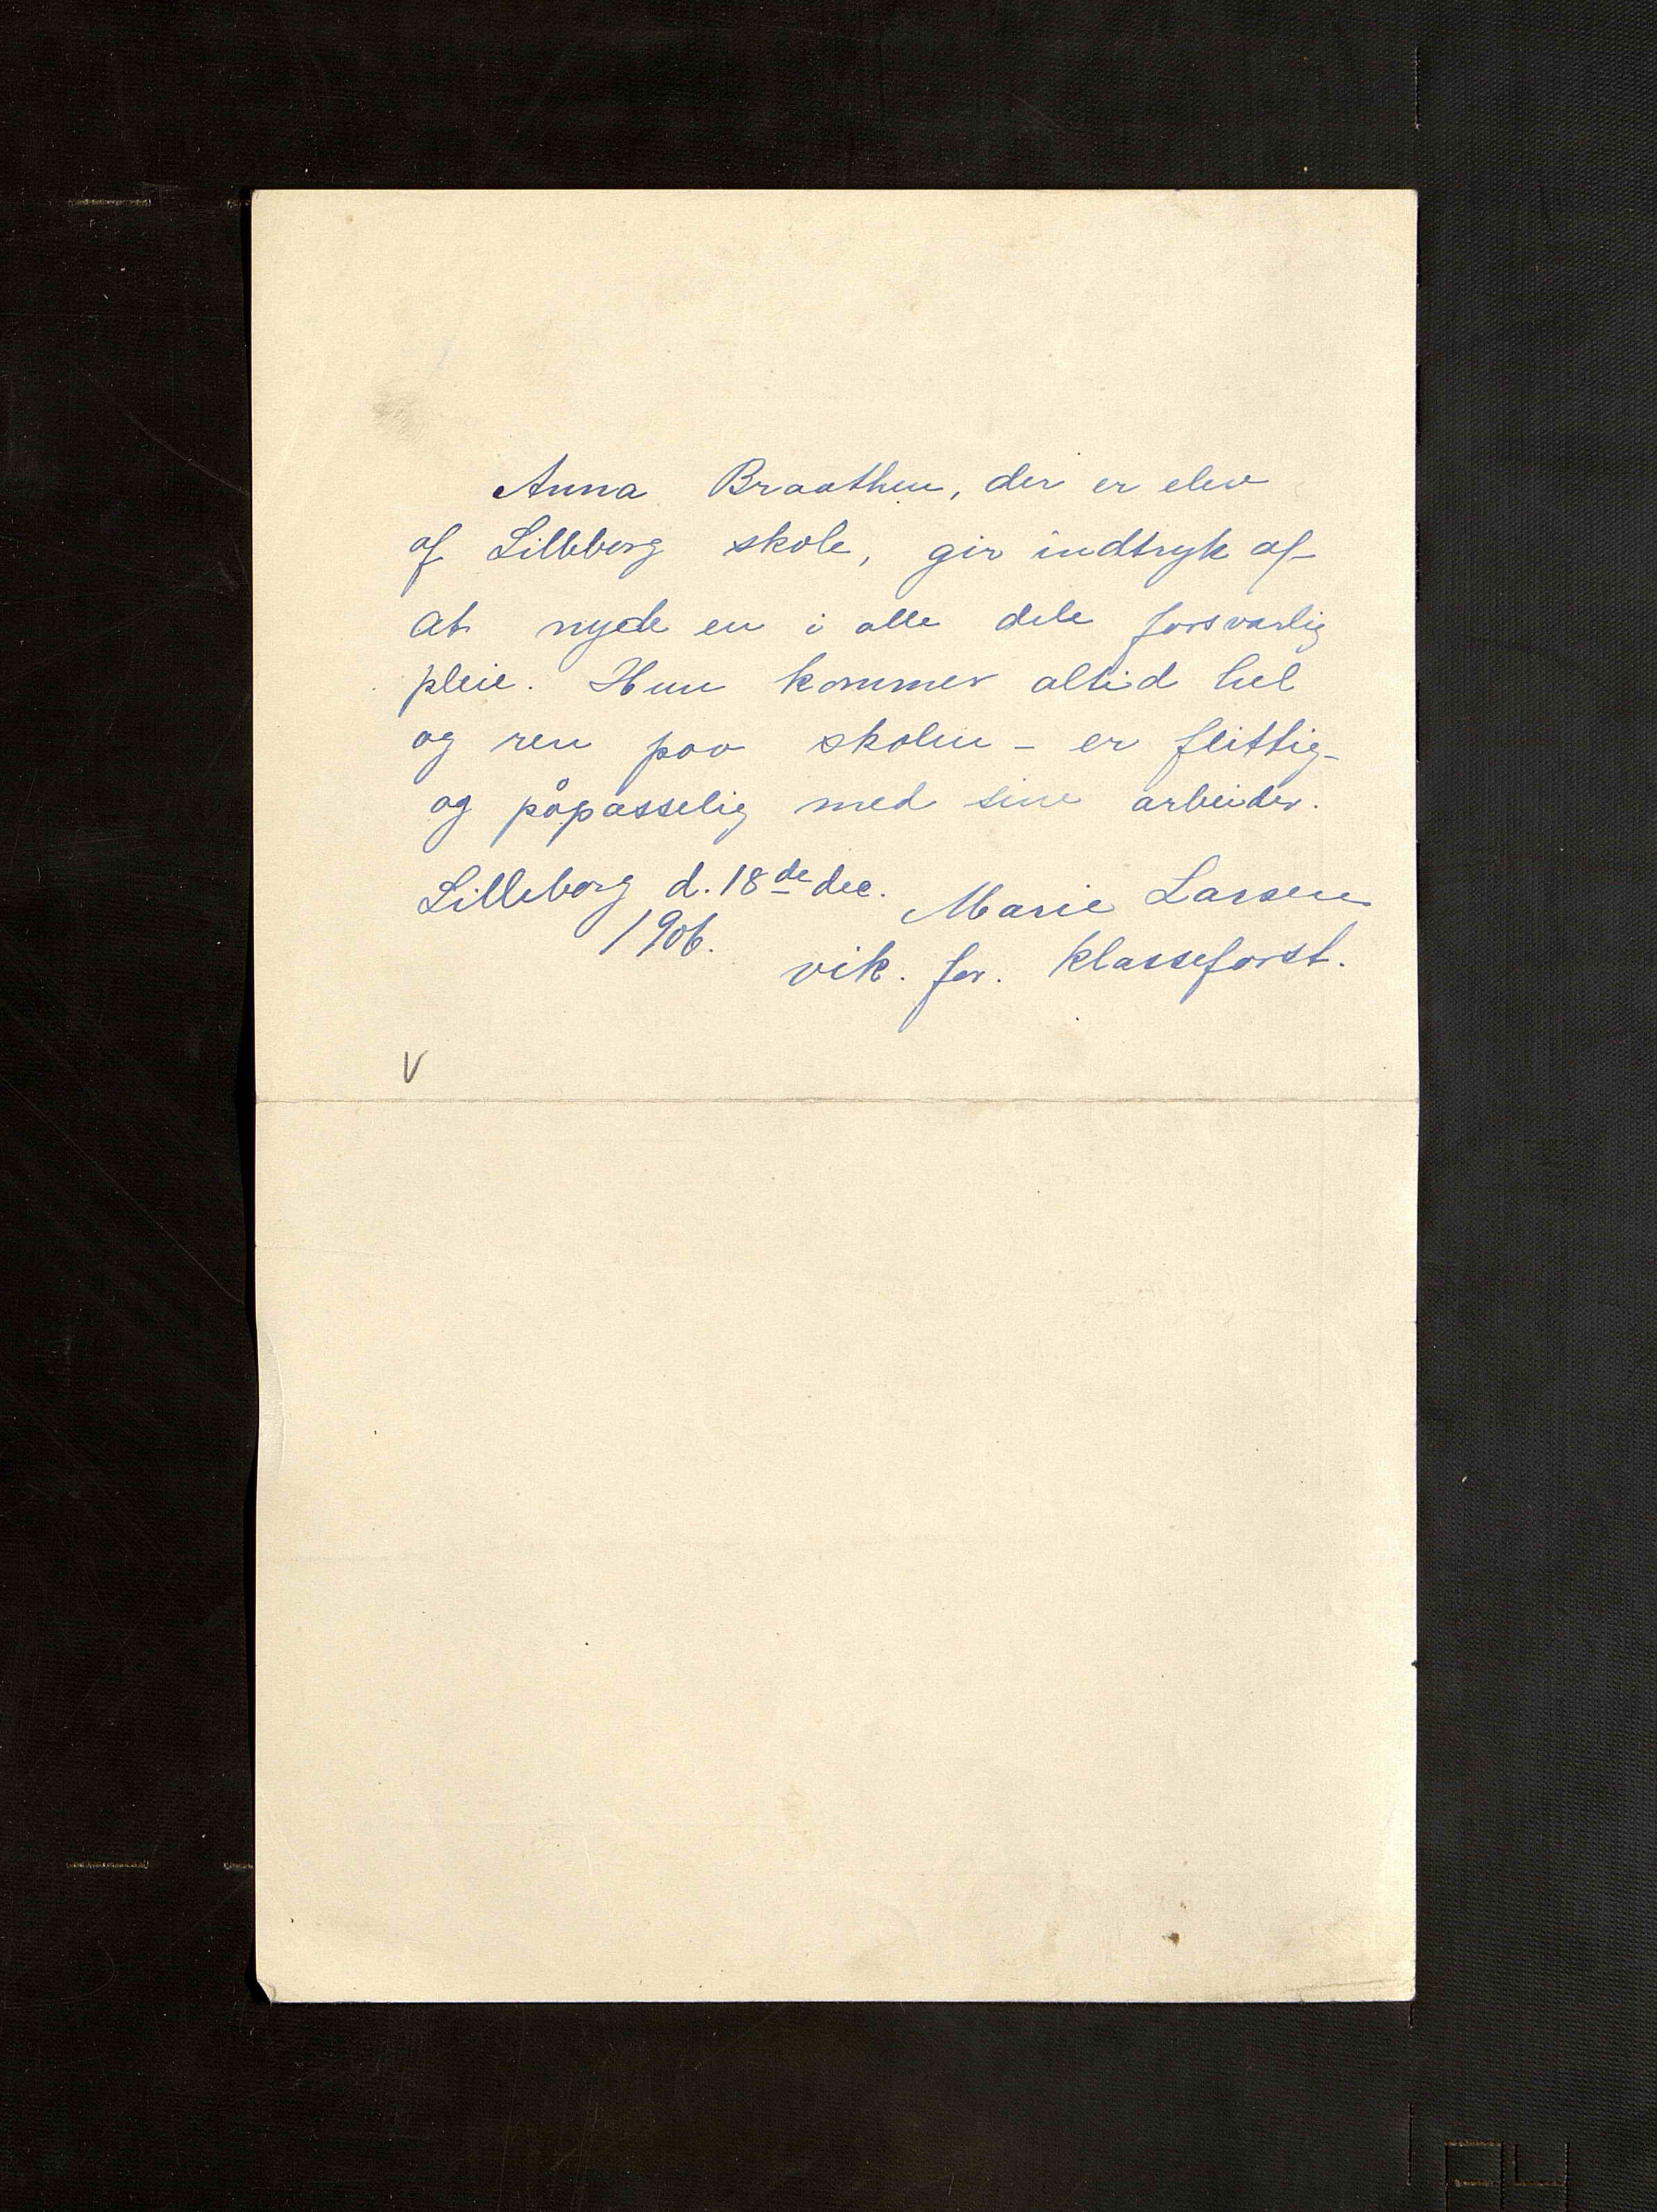 Anna Braathen, der er elev
af Lilleborg skole, gir indtryk af
at nyde en i alle dele forsvarlig
pleie. Hun kommer altid hel
og ren paa skolen - er flittig
og påpasselig med sine arbeider.
Lilleborg d. 18de dec. Marie Larsen
1906. vik. for. klasseforst.
V